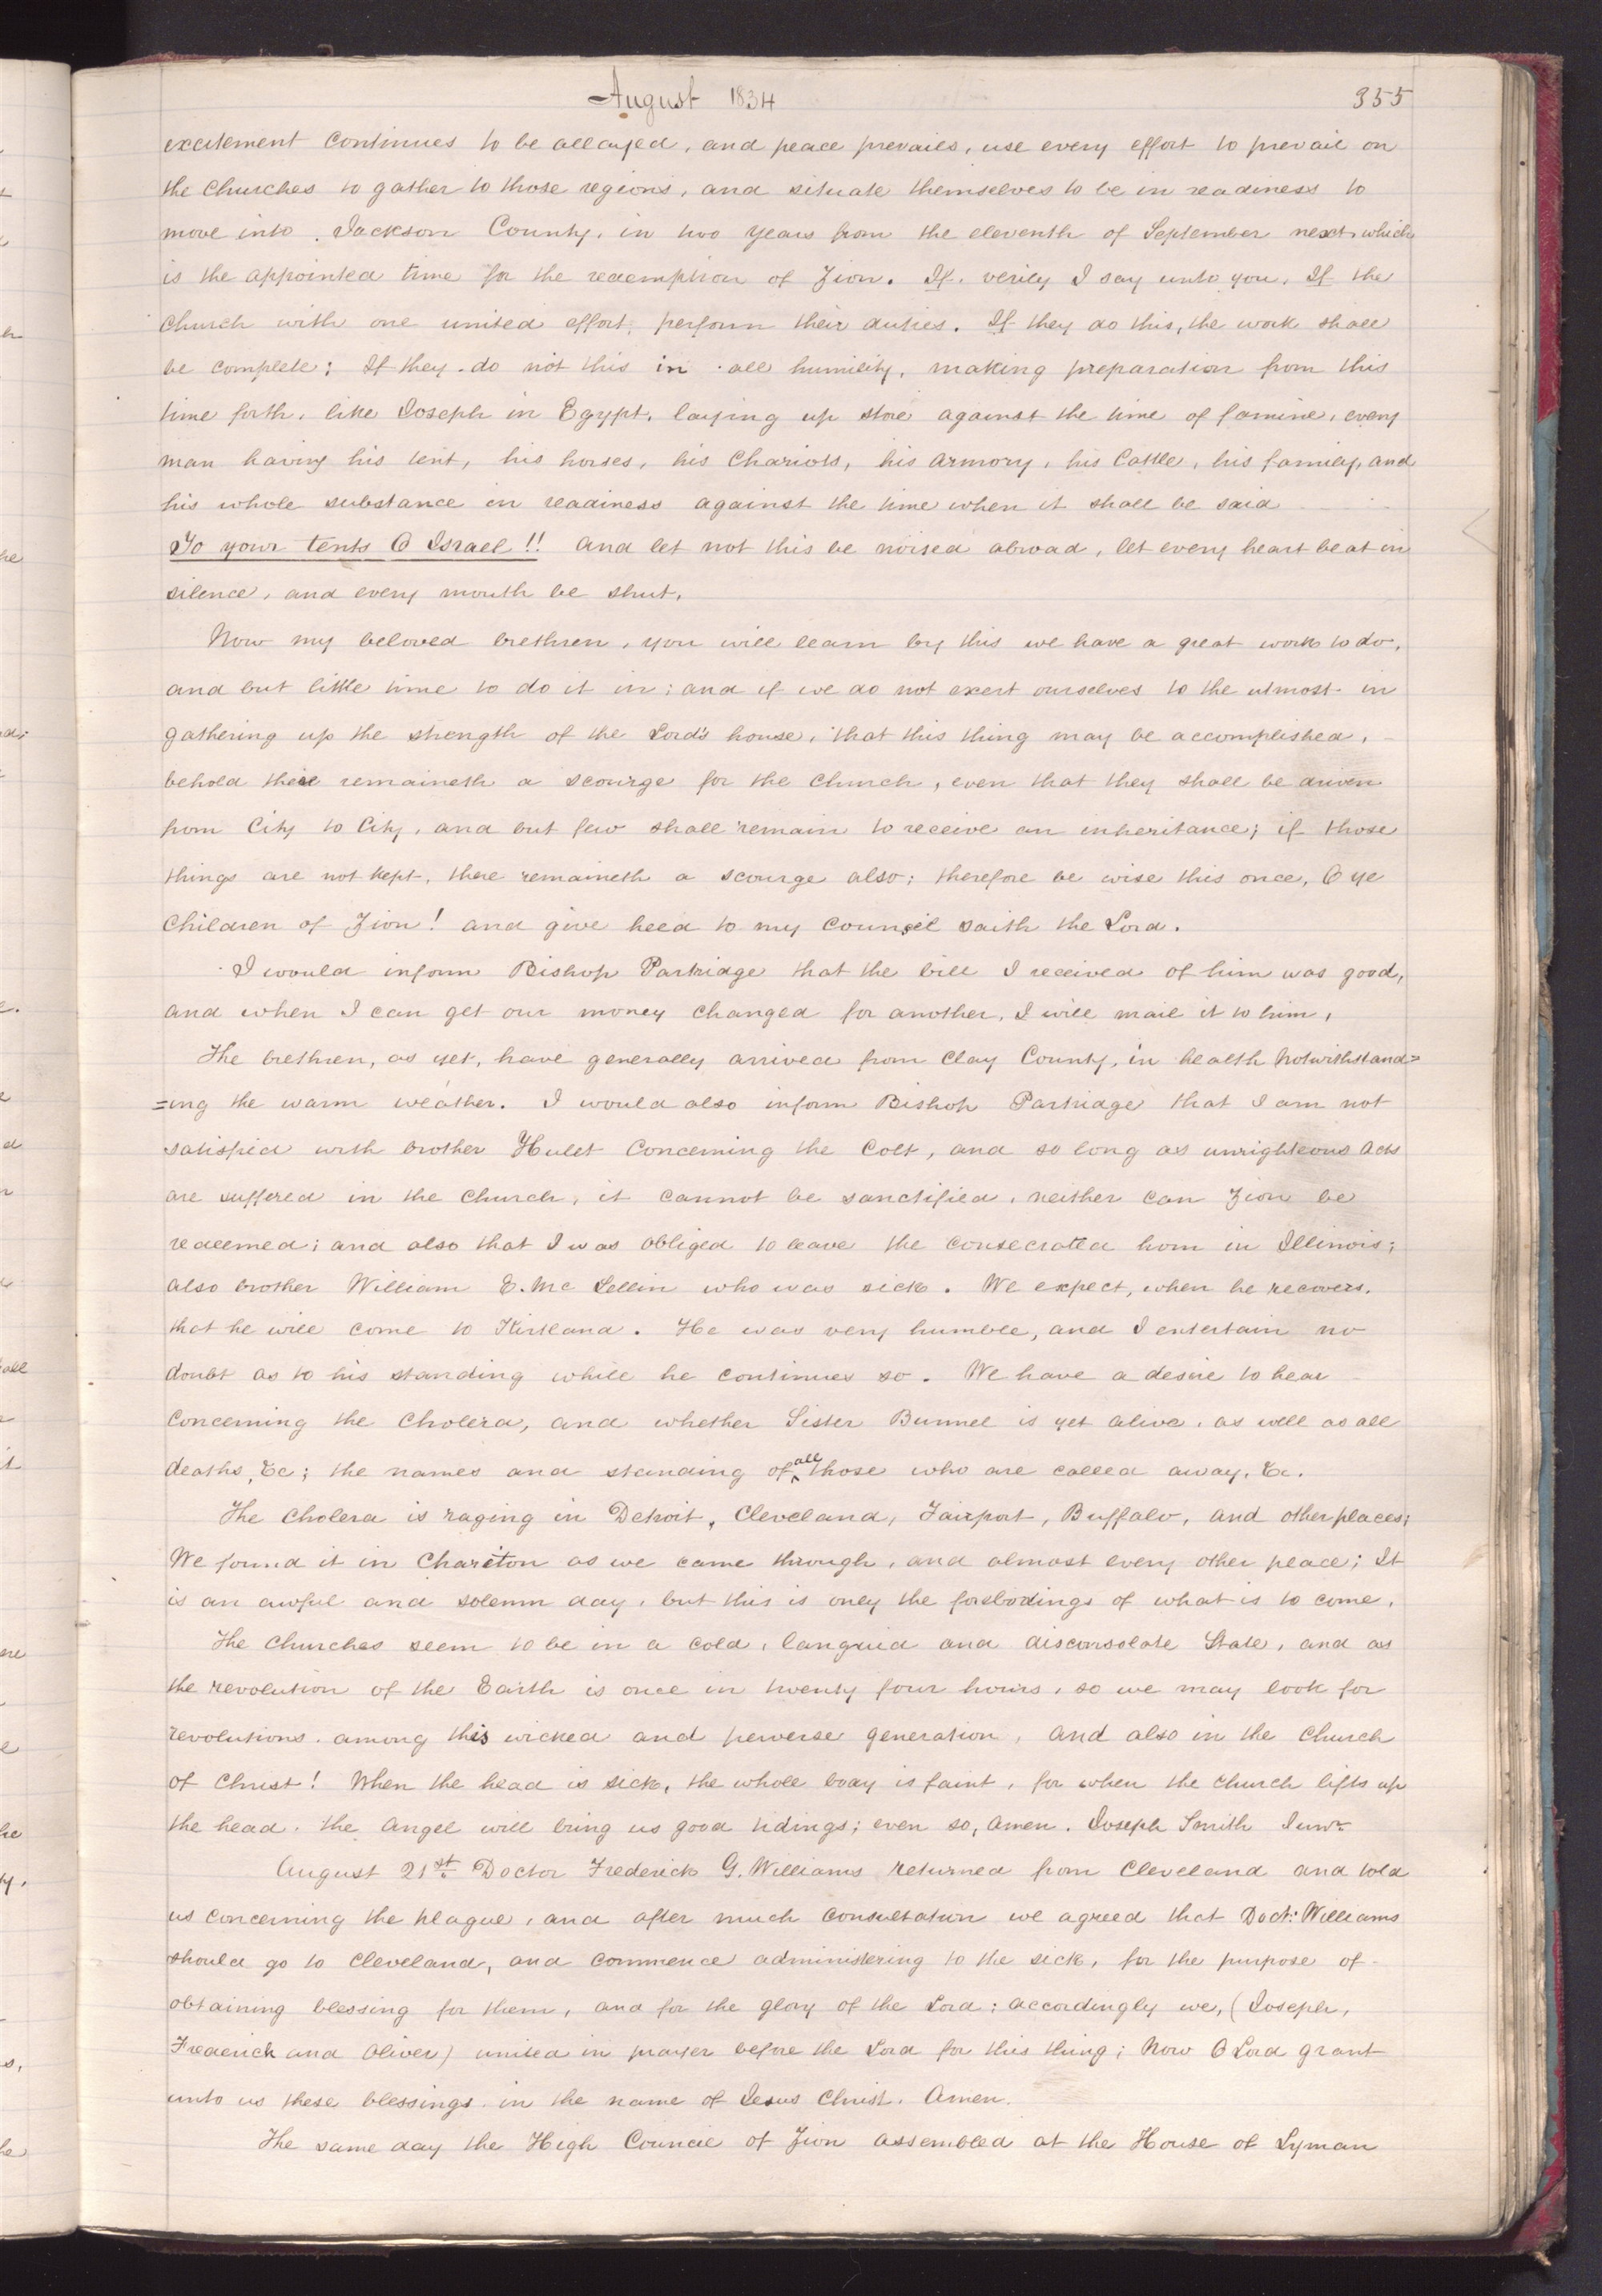 August 1834
355
excitement continues to be allayed, and peace prevails, use every effort to prevail on
the Churches to gather to those regions, and situate themselves to be in readiness to
move into Jackson County, in two years from the eleventh of September next, which
is the appointed time for the redemption of Zion. If, verily I say unto you, If the
Church with one united effort, perform their duties. If they do this, the work shall
be complete; If they do not this in all humility, making preparation from this
time forth, like Joseph in Egypt, laying up store against the time of famine, every
man having his tent, his horses, his Chariots, his Armory, his Cattle, his family, and
his whole substance in readiness against the time when it shall be said
To your tents O Israel!! and let not this be noised abroad, let every heart beat in
silence, and every mouth be shut.
Now my beloved brethren, you will learn by this we have a great work to do,
and but little time to do it in; and if we do not exert ourselves to the utmost in
gathering up the strength of the Lord's house, that this thing may be accomplished,
behold there remaineth a scourge for the Church, even that they shall be driven
from City to City, and but few shall remain to receive an inheritance; if those
things are not kept, there remaineth a scourge also; therefore be wise this once, O ye
Children of Zion! and give heed to my Counsel saith the Lord.
I would inform Bishop Partridge that the bill I received of him was good,
and when I can get our money Changed for another, I will mail it to him,
The brethren, as yet, have generally arrived from Clay County, in health Notwithstand=
=ing the warm weather. I would also inform Bishop Partridge that I am not
satisfied with brother Hulet Concerning the Colt, and so long as unrighteous acts
are suffered in the Church, it cannot be sanctified, neither can Zion be
redeemed; and also that I was obliged to leave the consecrated horn in Illinois;
also brother William E. Mc Lellin who was sick. We expect, when he recovers,
that he will come to Kirtland. He was very humble, and I entertain no
doubt as to his standing while he continues so. We have a desire to hear
Concerning the Cholera, and whether Sister Bunnel is yet alive, as well as all
deaths, &c; the names and standing of all those who are called away, &c.
The Cholera is raging in Detroit, Cleveland, Fairport, Buffalo, and other places;
We found it in Chariton as we came through, and almost every other place; It
is an awful and solemn day, but this is only the forebodings of what is to come.
The Churches seem to be in a cold, languid and disconsolate State, and as
the revolution of the Earth is once in twenty four hours, so we may look for
revolutions among this wicked and perverse generation, and also in the Church
of Christ! When the head is sick, the whole body is faint, for when the church lifts up
the head, the angel will bring us good tidings; even so, amen. Joseph Smith Junr
August 21st Doctor Frederick G. Williams returned from Cleveland and told
us concerning the plague, and after much Consultation we agreed that Doct: Williams
should go to Cleveland, and commence administering to the sick, for the purpose of
obtaining blessing for them, and for the glory of the Lord; accordingly we, (Joseph,
Frederick and Oliver) united in prayer before the Lord for this thing; Now O Lord grant
unto us these blessings in the name of Jesus Christ. Amen.
The same day the High Council of Zion assembled at the House of Lyman